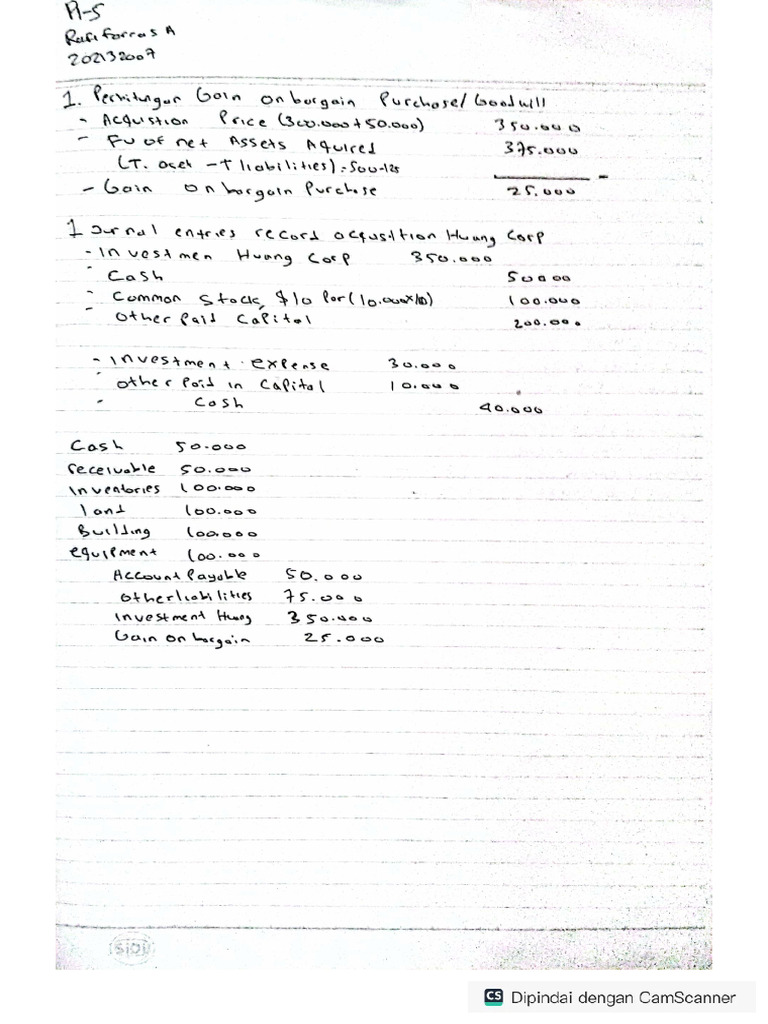 P1-5
Rafi Farras A
202132007
1. Perhitungan Gain on bargain Purchase/Goodwill
- Acquistion Price (300.000 + 50.000) 350.000
- FV of net Assets Aquired 375.000
(T. aset - T liabilities) = 500-125 -
- Gain on bargain Purchase 25.000
1 Journal entries record acqusition Hwang Corp
- Investmen Hwang Corp 350.000
- Cash 50000
- Common Stock, $10 Par (10.000x10) 100.000
- Other Paid Capital 200.000
- Investment expense 30.000
- Other Paid in Capital 10.000
- Cash 40.000
Cash 50.000
receivable 50.000
Inventories 100.000
land 100.000
Building 100.000
equipment 100.000
Account Payable 50.000
Other liabilities 75.000
Investment Hwang 350.000
Gain on bargain 25.000
SIDU
CS Dipindai dengan CamScanner